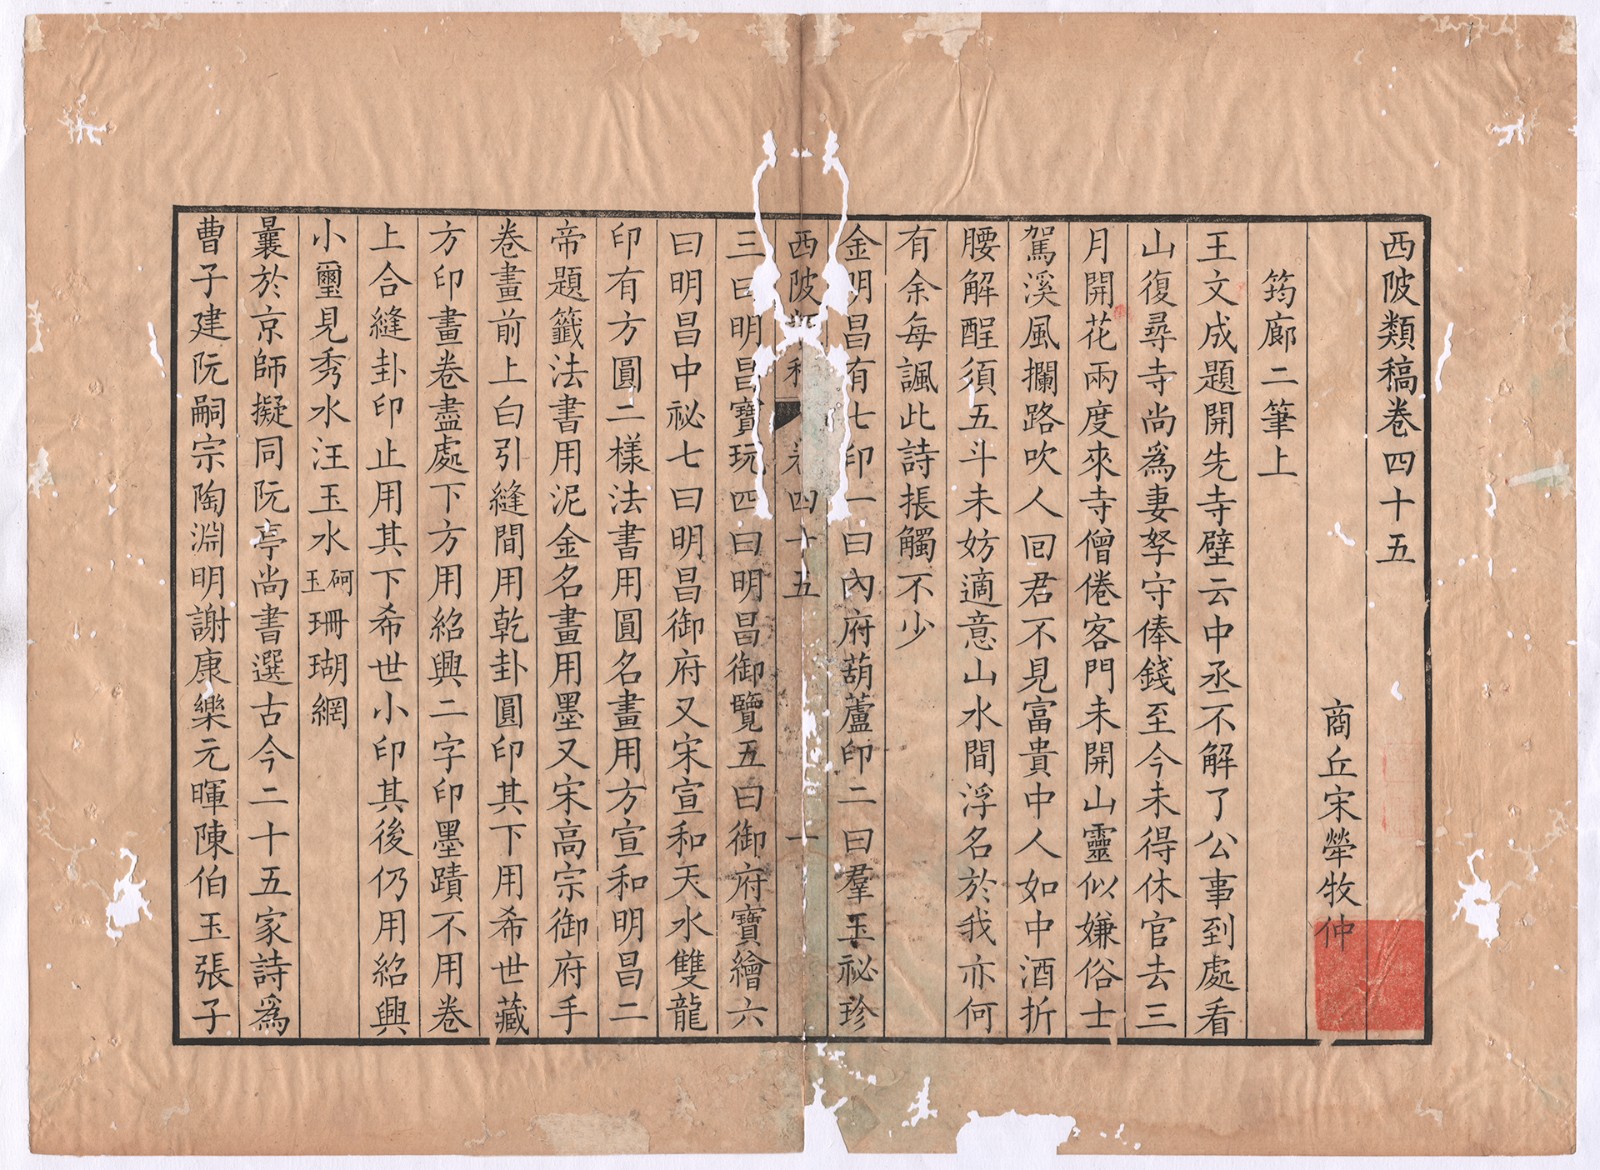 西陂類稿卷四十五
商丘宋犖牧仲
筠廊二筆上
王文成題開先寺壁云中丞不解了公事到處看
山復尋寺尚爲妻孥守俸錢至今未得休官去三
月開花兩度來寺僧倦客門未開山靈似嫌俗士
駕溪風攔路吹人回君不見富貴中人如中酒折
腰解酲須五斗未妨適意山水間浮名於我亦何
有余每諷此詩振觸不少
金明昌有七印一曰內府葫蘆印二曰羣玉祕珍
西陂類稿 卷四十五 一
三曰明昌寶玩四曰明昌御覽五曰御府寶繪六
曰明昌中祕七曰明昌御府又宋宣和天水雙龍
印有方圓二樣法書用圓名畫用方宣和明昌二
帝題籤法書用泥金名畫用墨又宋高宗御府手
卷畫前上白引縫間用乾卦圓印其下用希世藏
方印畫卷盡處下方用紹興二字印墨蹟不用卷
上合縫卦印止用其下希世小印其後仍用紹興
小璽見秀水汪玉水砢玉珊瑚網
曩於京師擬同阮亭尚書選古今二十五家詩爲
曹子建阮嗣宗陶淵明謝康樂元暉陳伯玉張子